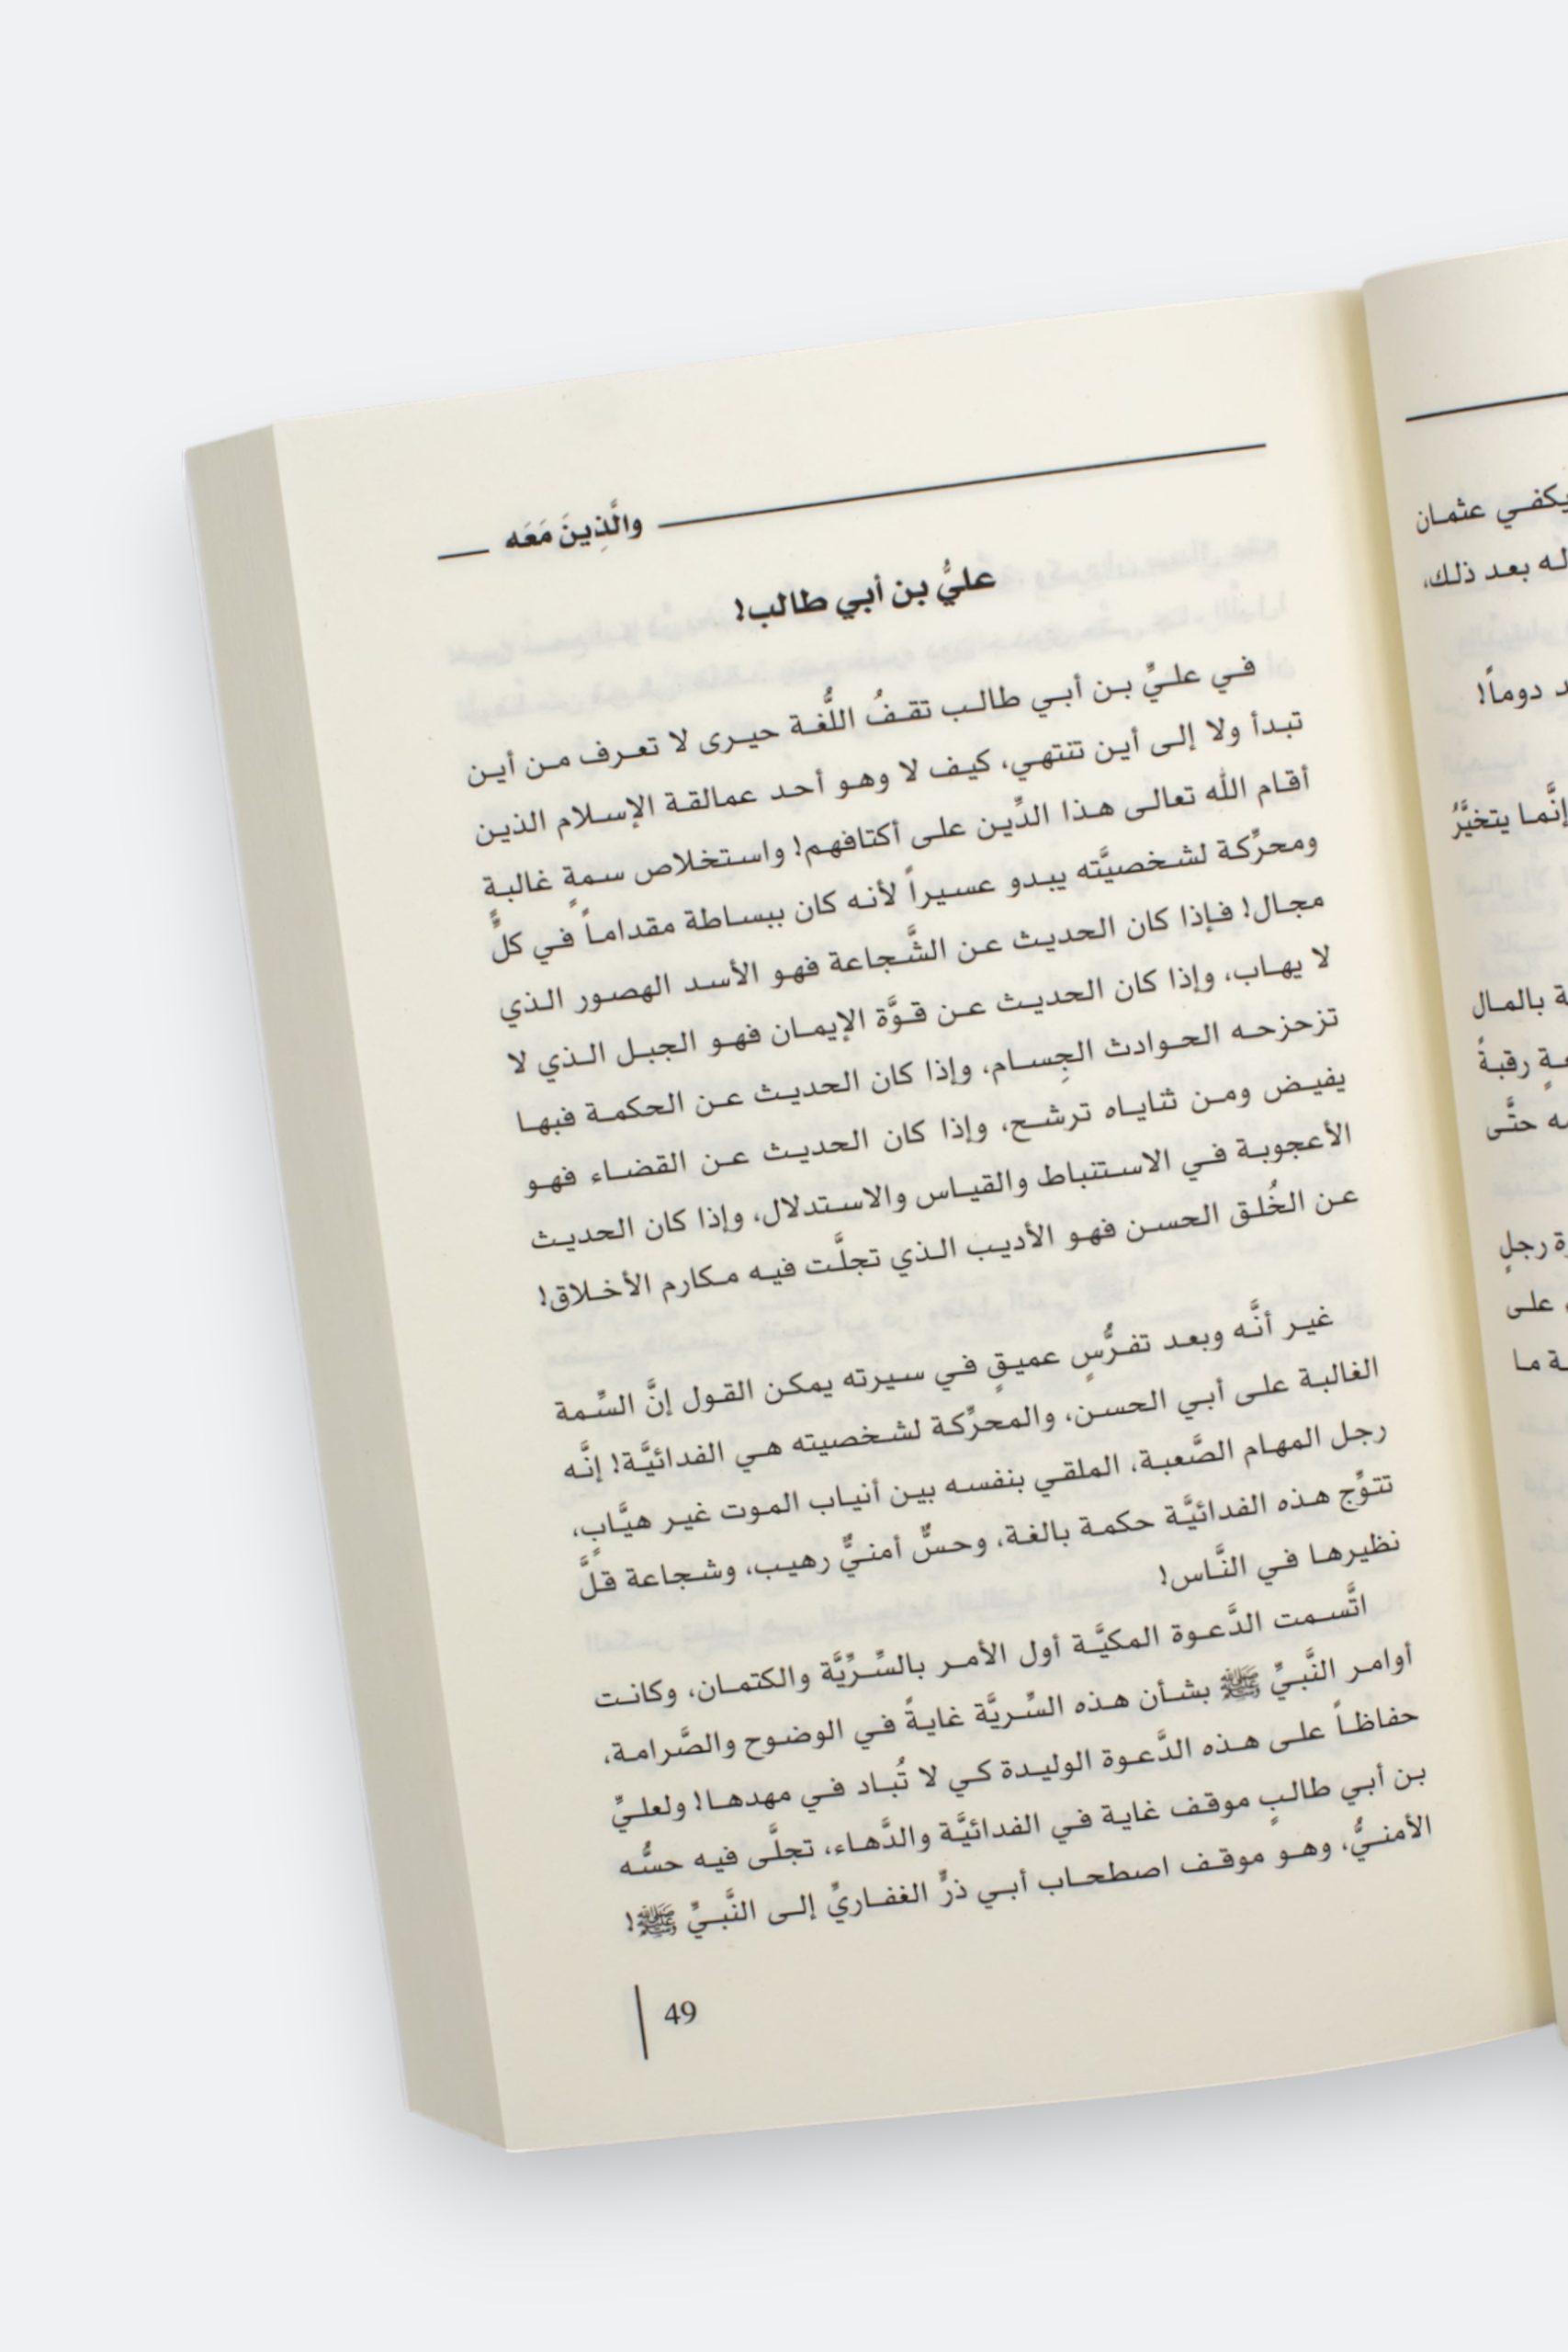 والَّذِينَ مَعَه
عليُّ بن أبي طالب!
في عليِّ بن أبي طالب تقفُ اللُّغة حيرى لا تعرف من أين
تبدأ ولا إلى أين تنتهي، كيف لا وهو أحد عمالقة الإسلام الذين
أقام الله تعالى هذا الدِّين على أكتافهم! واستخلاص سمةٍ غالبةٍ
ومحرِّكة لشخصيَّته يبدو عسيراً لأنه كان ببساطة مقداماً في كلِّ
مجال! فإذا كان الحديث عن الشَّجاعة فهو الأسد الهصور الذي
لا يهاب، وإذا كان الحديث عن قوَّة الإيمان فهو الجبل الذي لا
تزحزحه الحوادث الجِسام، وإذا كان الحديث عن الحكمة فبها
يفيض ومن ثناياه ترشح، وإذا كان الحديث عن القضاء فهو
الأعجوبة في الاستنباط والقياس والاستدلال، وإذا كان الحديث
عن الخُلق الحسن فهو الأديب الذي تجلَّت فيه مكارم الأخلاق!
غير أنَّه وبعد تفرُّسٍ عميقٍ في سيرته يمكن القول إنَّ السِّمة
الغالبة على أبي الحسن، والمحرِّكة لشخصيته هي الفدائيَّة! إنَّه
رجل المهام الصَّعبة، الملقي بنفسه بين أنياب الموت غير هيَّابٍ،
تتوِّج هذه الفدائيَّة حكمة بالغة، وحسٌّ أمنيٌّ رهيب، وشجاعة قلَّ
نظيرها في النَّاس!
اتَّسمت الدَّعوة المكيَّة أول الأمر بالسِّرِّيَّة والكتمان، وكانت
أوامر النَّبيِّ ﷺ بشأن هذه السِّريَّة غايةً في الوضوح والصَّرامة،
حفاظاً على هذه الدَّعوة الوليدة كي لا تُباد في مهدها! ولعليِّ
بن أبي طالبٍ موقف غاية في الفدائيَّة والدَّهاء، تجلَّى فيه حسُّه
الأمنيُّ، وهو موقف اصطحاب أبي ذرٍّ الغفاريِّ إلى النَّبيِّ ﷺ!
49
يكفي عثمان
له بعد ذلك،
دوماً!
إنَّما يتخيَّرُ
بالمال
رقبةً
حتَّى
رجلٍ
على
ما